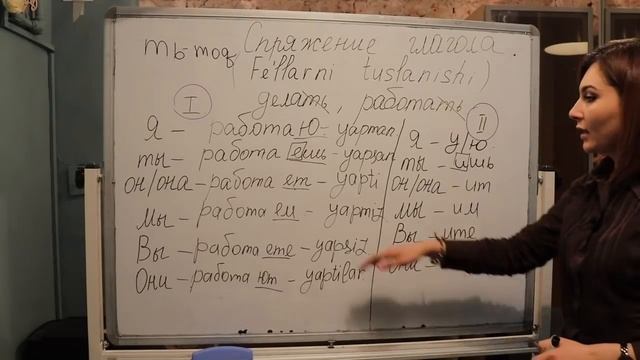 ть-moq Спряжение глагола
(Fe'llarni tuslanishi)
делать, работать
I
Я – работаю – yapman
ты – работаешь – yapsan
он/она – работает – yapti
Мы – работаем – yapmiz
Вы – работаете – yapsiz
Они – работают – yaptilar
II
Я – у/ю
ты – ишь
он/она – ит
Мы – им
Вы – ите